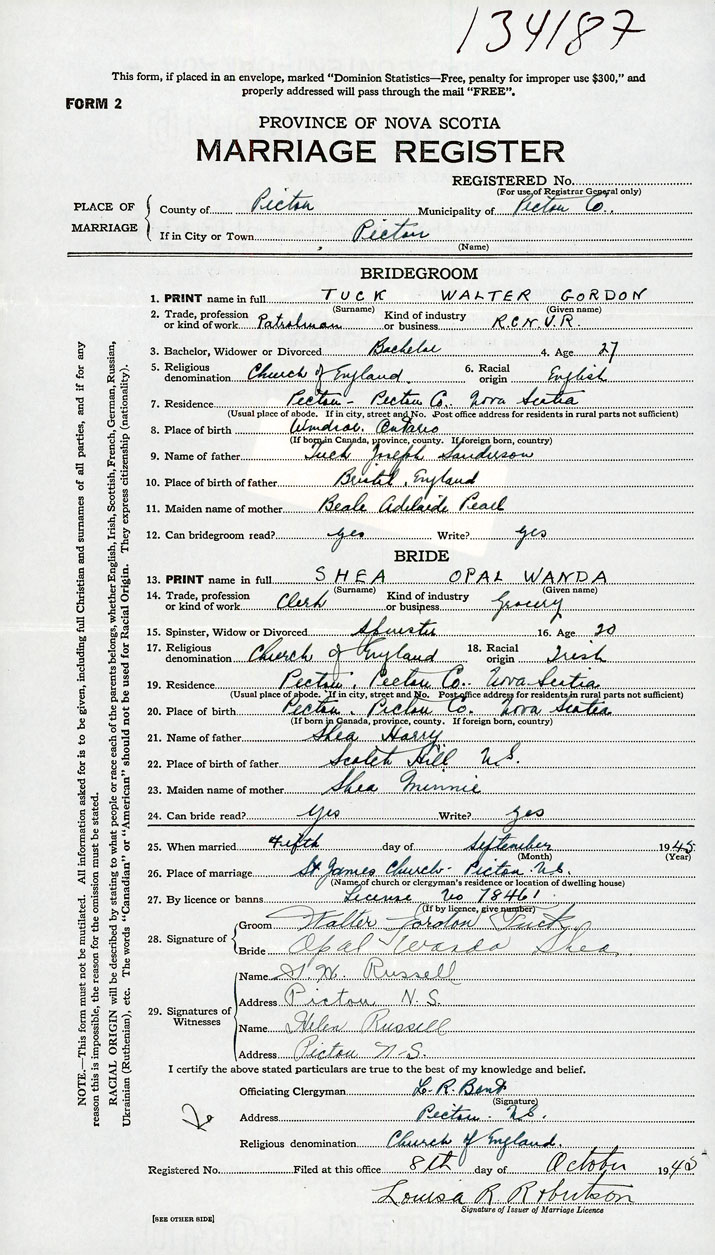 134187
This form, if placed in an envelope, marked “Dominion Statistics—Free, penalty for improper use $300,” and
properly addressed will pass through the mail “FREE”.
FORM 2
PROVINCE OF NOVA SCOTIA
MARRIAGE REGISTER
REGISTERED No.
(For use of Registrar General only)
PLACE OF MARRIAGE
County of Pictou Municipality of Pictou Co.
If in City or Town Pictou
(Name)
BRIDEGROOM
1. PRINT name in full TUCK WALTER GORDON
(Surname) (Given name)
2. Trade, profession or kind of work Patrolman Kind of industry or business R.C.N.V.R.
3. Bachelor, Widower or Divorced Bachelor 4. Age 27
5. Religious denomination Church of England 6. Racial origin English
7. Residence Pictou - Pictou Co. Nova Scotia
(Usual place of abode. If in city, street and No. Post office address for residents in rural parts not sufficient)
8. Place of birth Windsor, Ontario
(If born in Canada, province, county. If foreign born, country)
9. Name of father Tuck Joseph Sanderson
10. Place of birth of father Bristol, England
11. Maiden name of mother Beale Adelaide Pearl
12. Can bridegroom read? yes Write? yes
BRIDE
13. PRINT name in full SHEA OPAL WANDA
(Surname) (Given name)
14. Trade, profession or kind of work Clerk Kind of industry or business Grocery
15. Spinster, Widow or Divorced Spinster 16. Age 20
17. Religious denomination Church of England 18. Racial origin Irish
19. Residence Pictou, Pictou Co. Nova Scotia
(Usual place of abode. If in city, street and No. Post office address for residents in rural parts not sufficient)
20. Place of birth Pictou, Pictou Co. Nova Scotia
(If born in Canada, province, county. If foreign born, country)
21. Name of father Shea Harry
22. Place of birth of father Scotch Hill N.S.
23. Maiden name of mother Shea Minnie
24. Can bride read? Yes Write? yes
25. When married Fifth day of September 1945
(Month) (Year)
26. Place of marriage St James Church - Pictou N.S.
(Name of church or clergyman's residence or location of dwelling house)
27. By licence or banns License No 78461
(If by licence, give number)
28. Signature of
Groom Walter Gordon Tuck
Bride Opal Wanda Shea
29. Signatures of Witnesses
Name Russell
Address Pictou N.S.
Name Helen Russell
Address Pictou N.S.
I certify the above stated particulars are true to the best of my knowledge and belief.
Officiating Clergyman L. R. Bent
(Signature)
Address Pictou N.S.
Religious denomination Church of England.
Registered No. Filed at this office 8th day of October 1945
Louisa R. Robertson
Signature of Issuer of Marriage Licence
[SEE OTHER SIDE]
NOTE.—This form must not be mutilated. All information asked for is to be given, including full Christian and surnames of all parties, and if for any
reason this is impossible, the reason for the omission must be stated.
RACIAL ORIGIN will be described by stating to what people or race each of the parents belongs, whether English, Irish, Scottish, French, German, Russian,
Ukrainian (Ruthenian), etc. The words “Canadian” or “American” should not be used for Racial Origin. They express citizenship (nationality).